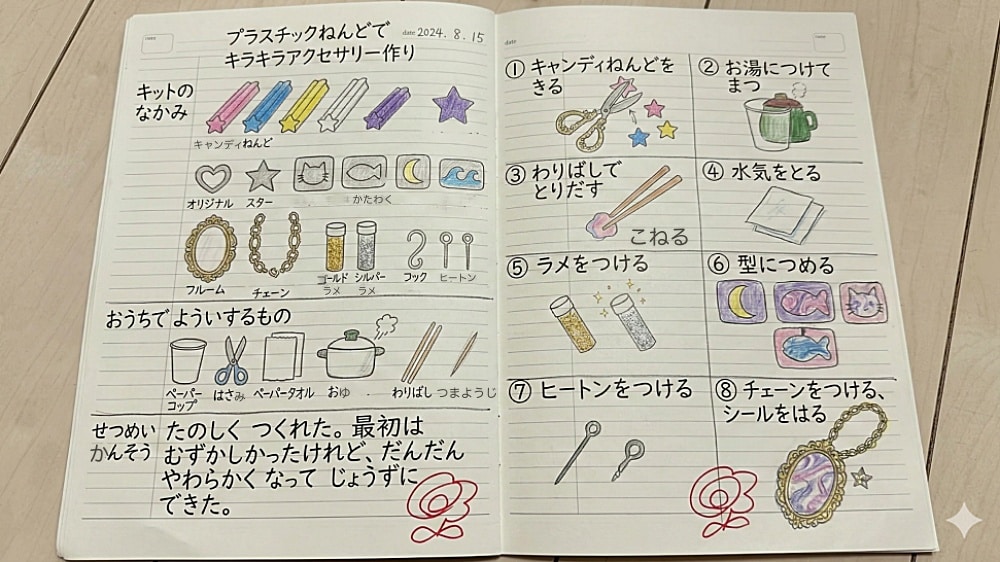 プラスチックねんどで
キラキラアクセサリー作り
date 2024. 8. 15
キットの
なかみ
キャンディねんど
オリジナル スター かたわく
フルーム チェーン ゴールド シルバー コック ヒートン
ラメ ラメ
おうちでよういするもの
ペーパー はさみ ペーパータオル おゆ わりばし つまようじ
コップ
せつめい たのしく つくれた。最初は
かんそう むずかしかったけれど、だんだん
やわらかく なって じょうずに
できた。
date
① キャンディねんどを
きる
② お湯につけて
まつ
③ わりばしで
とりだす
こねる
④ 水気をとる
⑤ ラメをつける
⑥ 型につめる
⑦ ヒートンをつける
⑧ チェーンをつける、
シールをはる